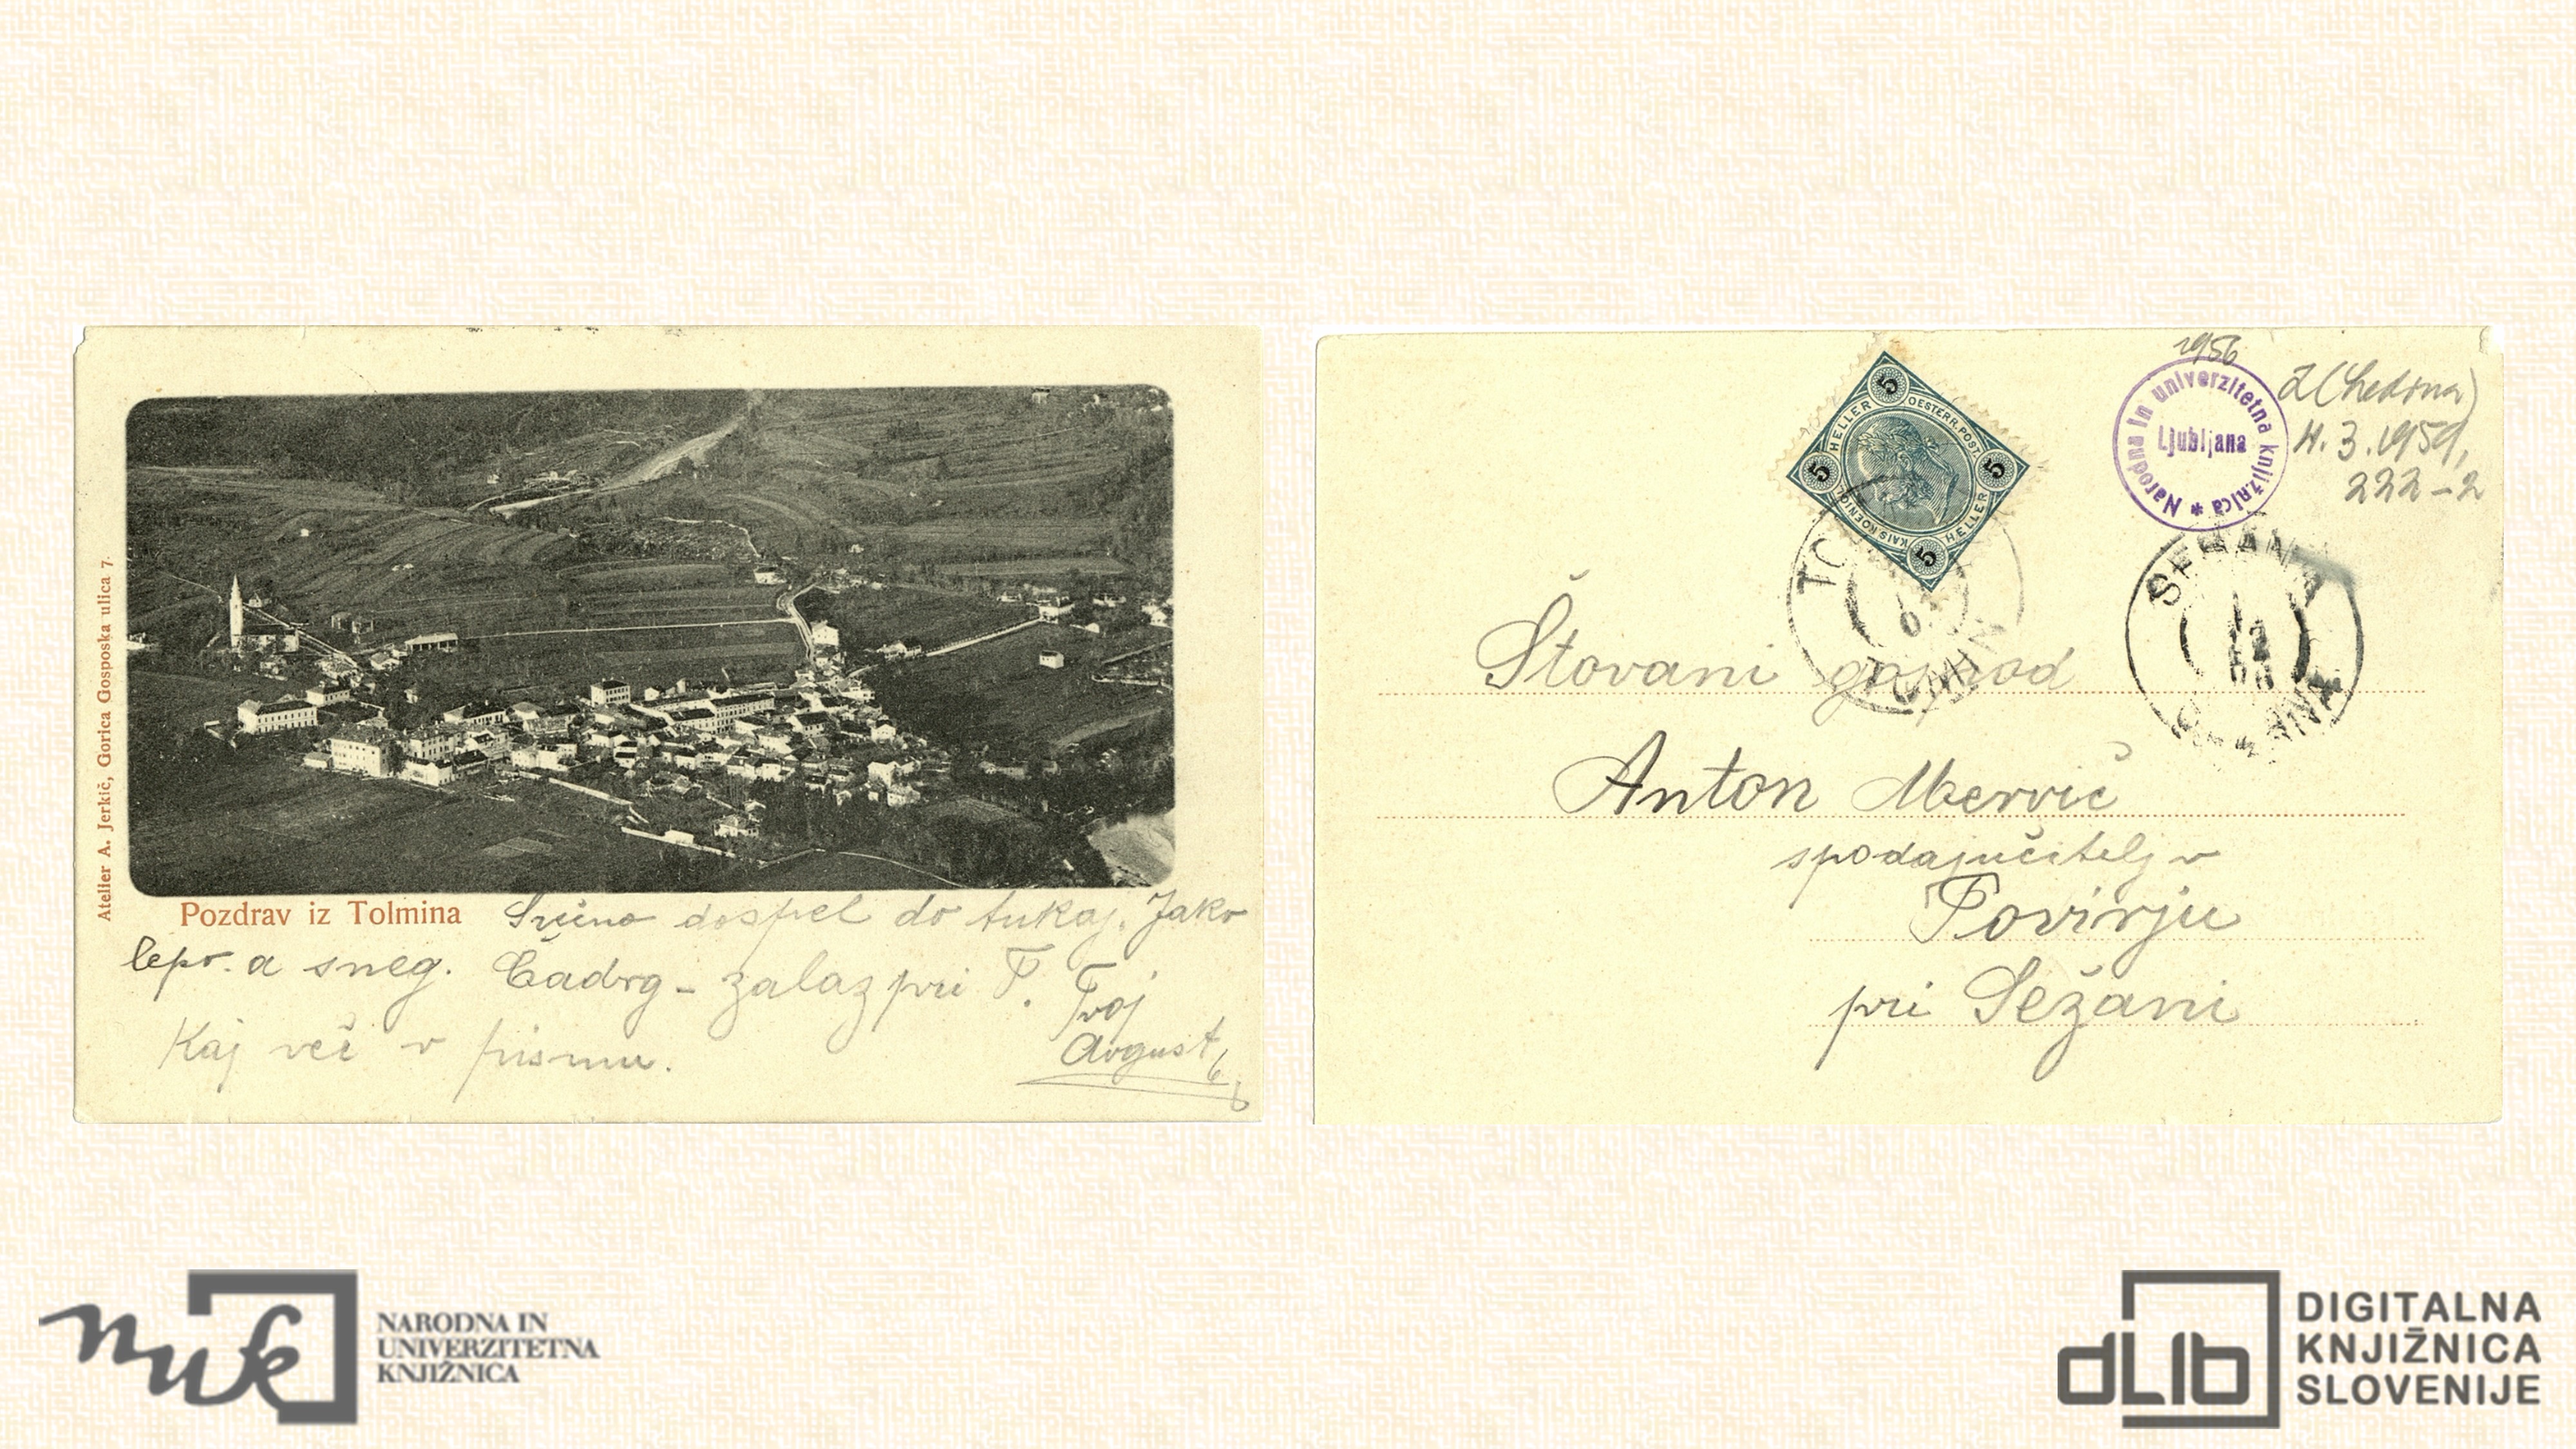 Atelier A. Jerkič, Gorica Gosposka ulica 7.
Pozdrav iz Tolmina
Srečno dospel do tukaj. Jako
lepo. a sneg. Čadrg - zalaz pri T. Tvoj
Kaj več v pismu.
Avgust
5 HELLER 5 OESTERR. POST. 5 HELLER 5 KAIS. KOENIGL.
TOLMIN
1956
Narodna in univerzitetna knjižnica *
Ljubljana
4. 3. 1959,
222-2
SESANA
Štovani gospod
Anton Mervič
spodajučitelj v
Povirju
pri Sežani
nuk
NARODNA IN
UNIVERZITETNA
KNJIŽNICA
dLib
DIGITALNA
KNJIŽNICA
SLOVENIJE